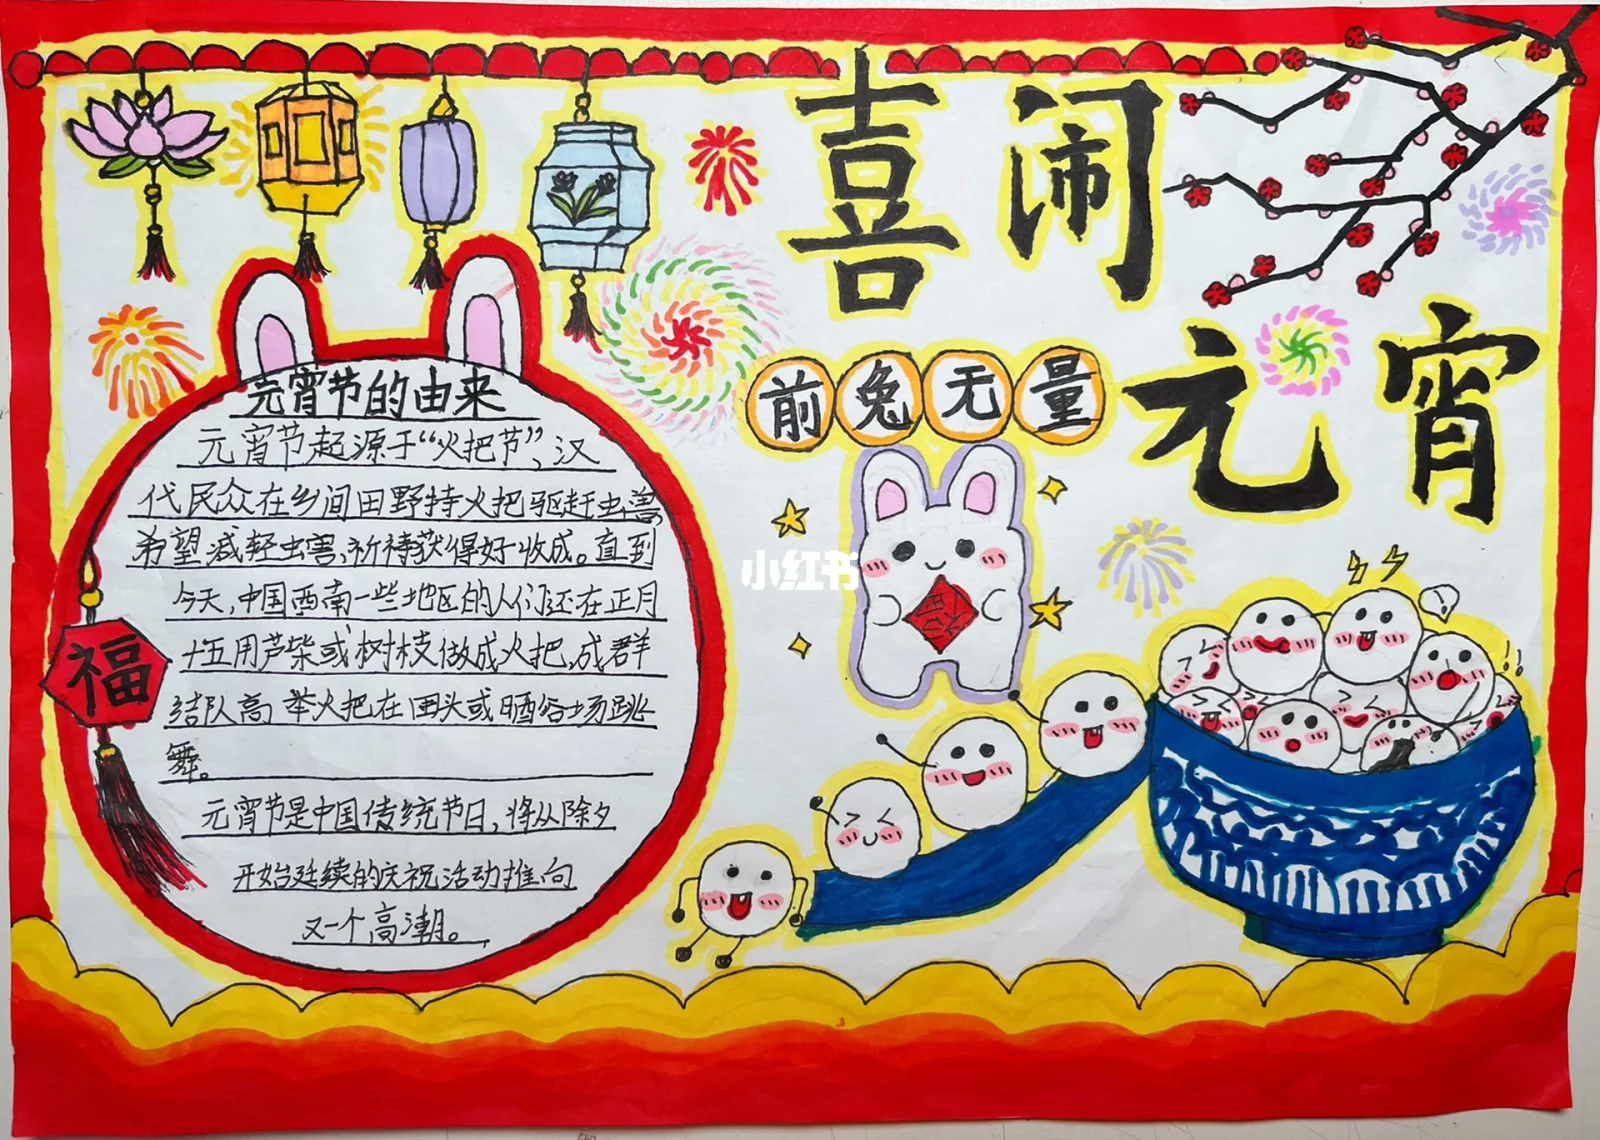 喜闹
元宵
前兔无量
元宵节的由来
元宵节起源于“火把节”,汉
代民众在乡间田野持火把驱赶虫兽,
希望减轻虫害,祈待获得好收成。直到
今天,中国西南一些地区的人们还在正月
十五用芦柴或树枝做成火把,成群
结队高举火把在田头或晒谷场跳
舞。
元宵节是中国传统节日,将从除夕
开始延续的庆祝活动推向
又一个高潮。
福
小红书